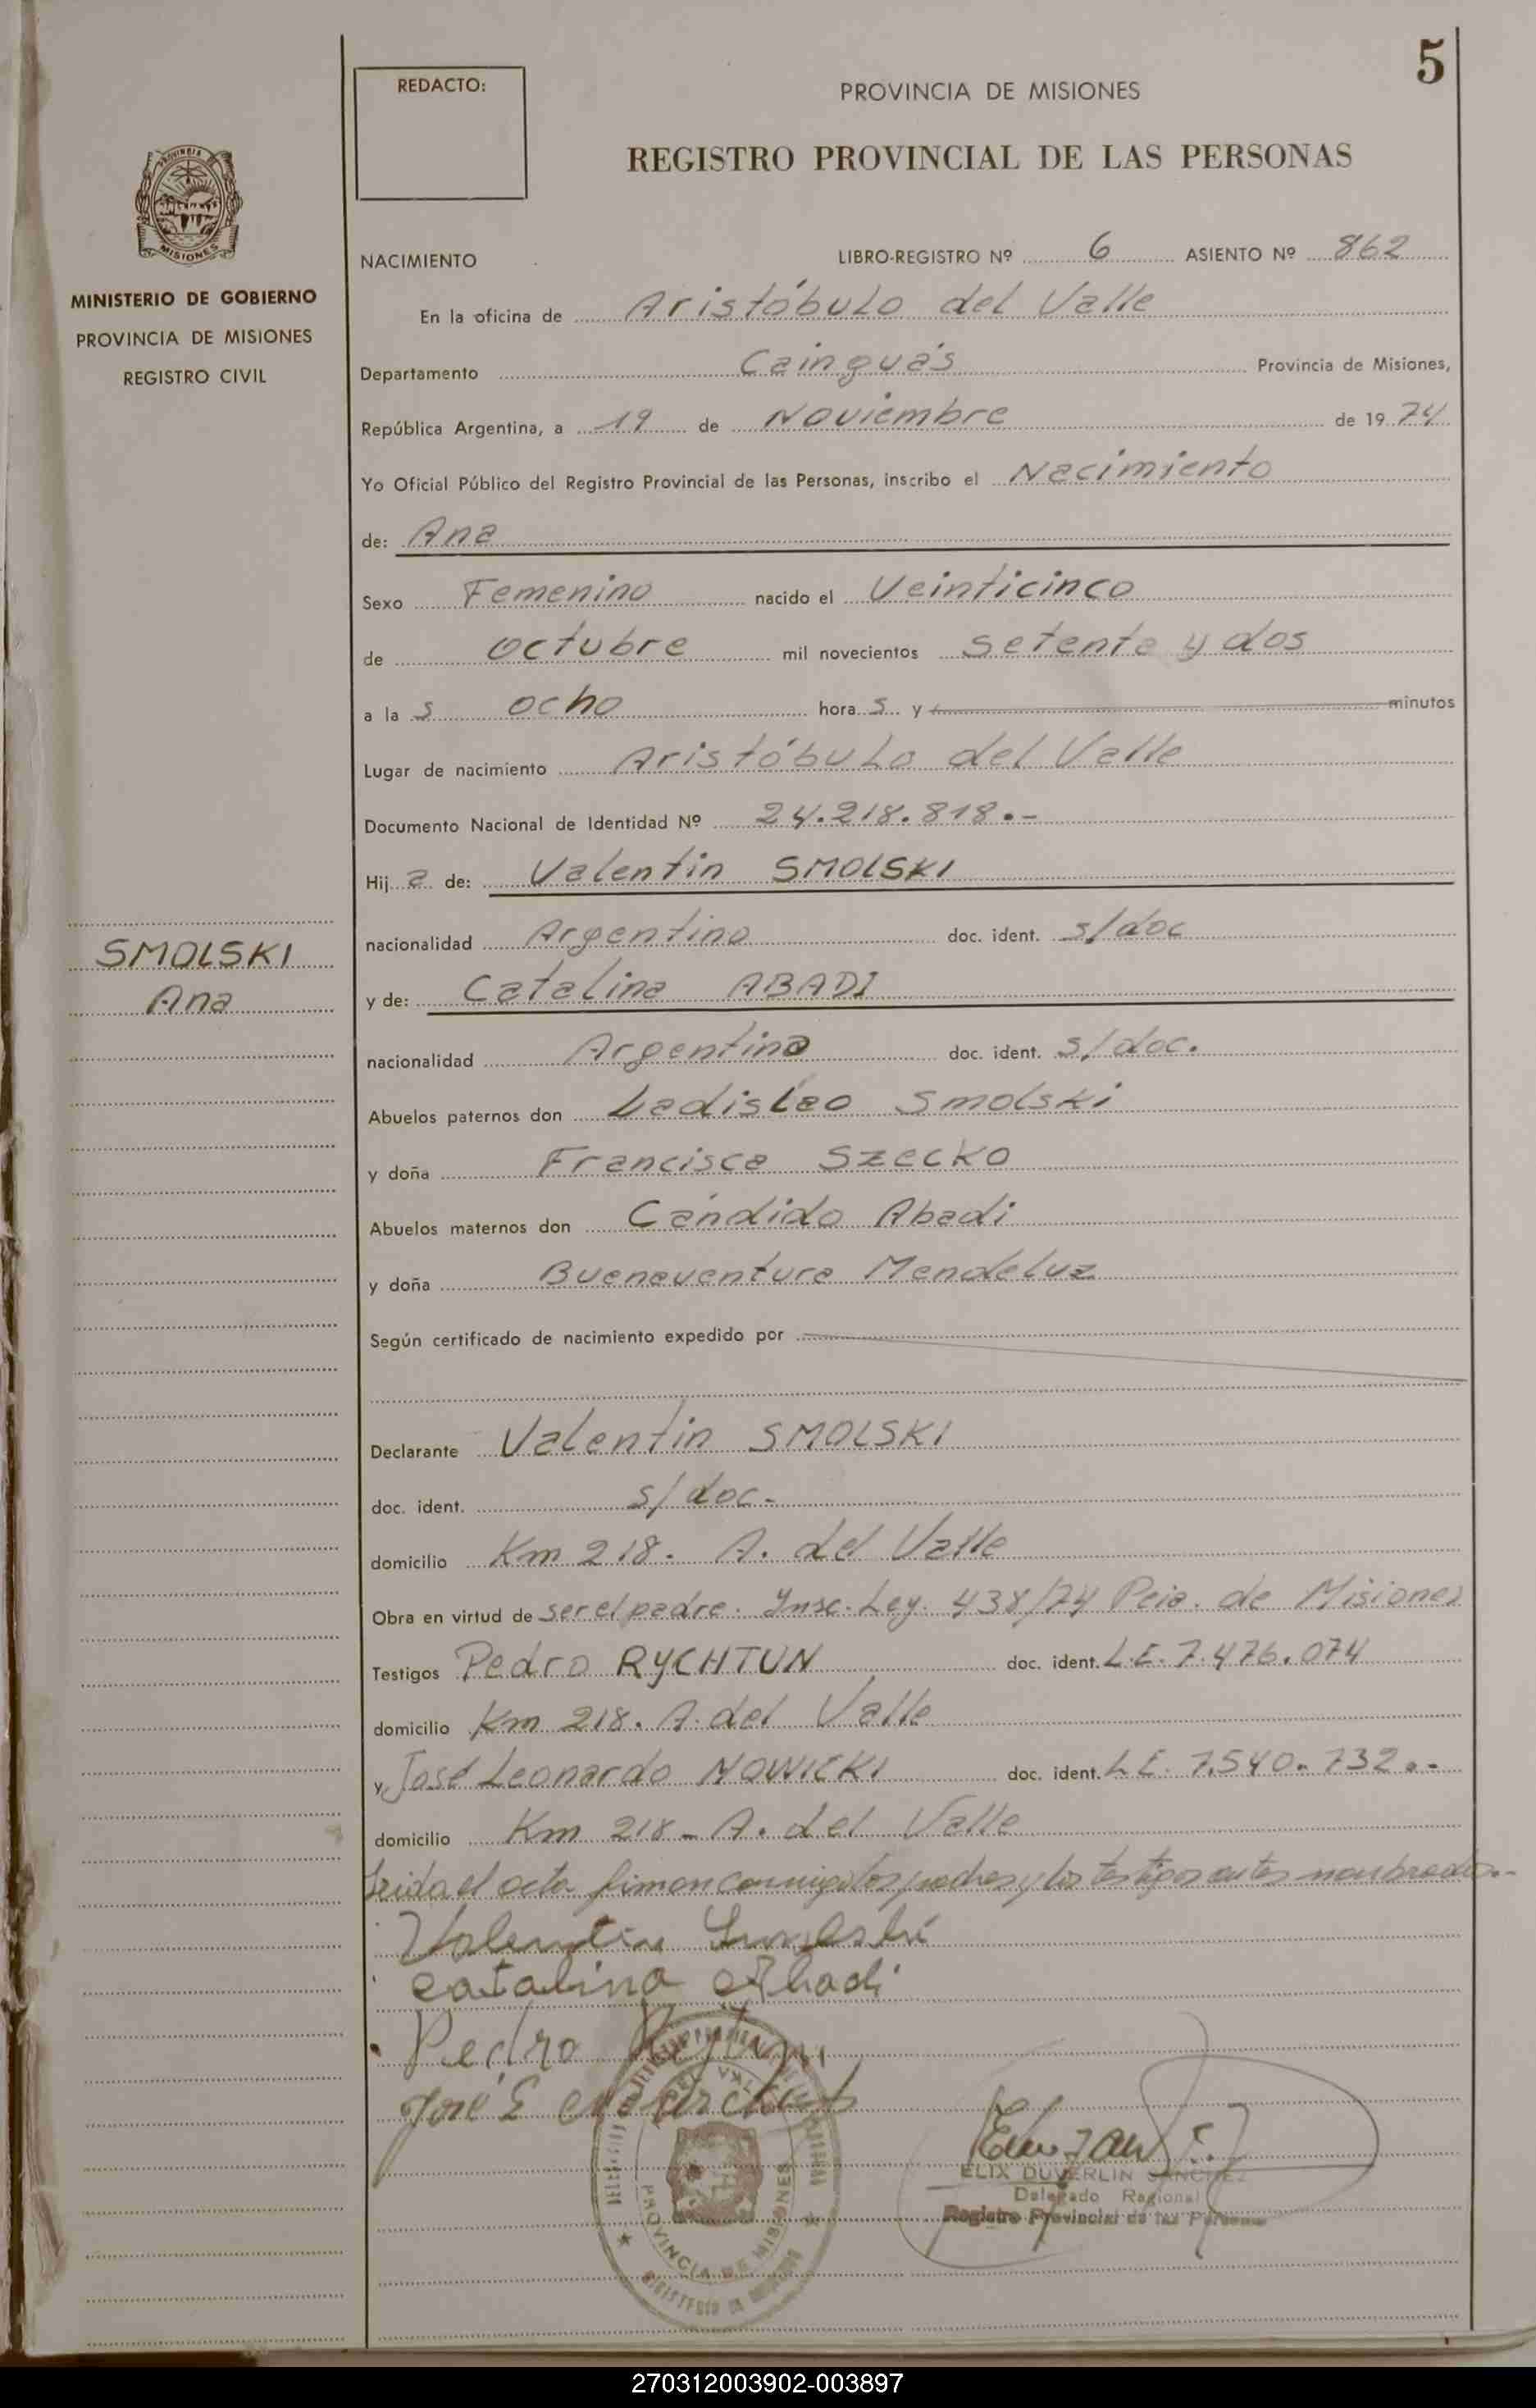 5
REDACTO:
PROVINCIA DE MISIONES
REGISTRO PROVINCIAL DE LAS PERSONAS
MISIONES
MINISTERIO DE GOBIERNO
PROVINCIA DE MISIONES
REGISTRO CIVIL
NACIMIENTO LIBRO-REGISTRO Nº 6 ASIENTO Nº 862
En la oficina de Aristóbulo del Valle
Departamento Cainguás Provincia de Misiones,
República Argentina, a 19 de Noviembre de 1974
Yo Oficial Público del Registro Provincial de las Personas, inscribo el Nacimiento
de: Ana
Sexo Femenino nacido el Veinticinco
de octubre mil novecientos setenta y dos
a las ocho horas y minutos
Lugar de nacimiento Aristóbulo del Valle
Documento Nacional de Identidad Nº 24.218.818.-
Hija de: Valentin SMOLSKI
nacionalidad Argentino doc. ident. s/doc
SMOLSKI
Ana
y de: Catalina ABADI
nacionalidad Argentina doc. ident. s/doc.
Abuelos paternos don Ladislao Smolski
y doña Francisca Szecko
Abuelos maternos don Cándido Abadi
y doña Buenaventura Mendeluz
Según certificado de nacimiento expedido por
Declarante Valentin SMOLSKI
doc. ident. s/doc.-
domicilio Km 218. A. del Valle
Obra en virtud de ser el padre. Ynsc. Ley. 438/74 Pcia. de Misiones
Testigos Pedro RYCHTUN doc. ident. L.E. 7.476.074
domicilio Km 218. A. del Valle
y José Leonardo NOWICKI doc. ident. L.E. 7.540.732.-
domicilio Km 218 - A. del Valle
Leida el acta firman conmigo los padres y los testigos antes nombrados.-
Valentin Smolski
Catalina Abadi
Pedro
José
PROVINCIA DE MISIONES
ELIX DUVERLIN SANCHEZ
Delegado Regional
Registro Provincial de las Personas
270312003902-003897